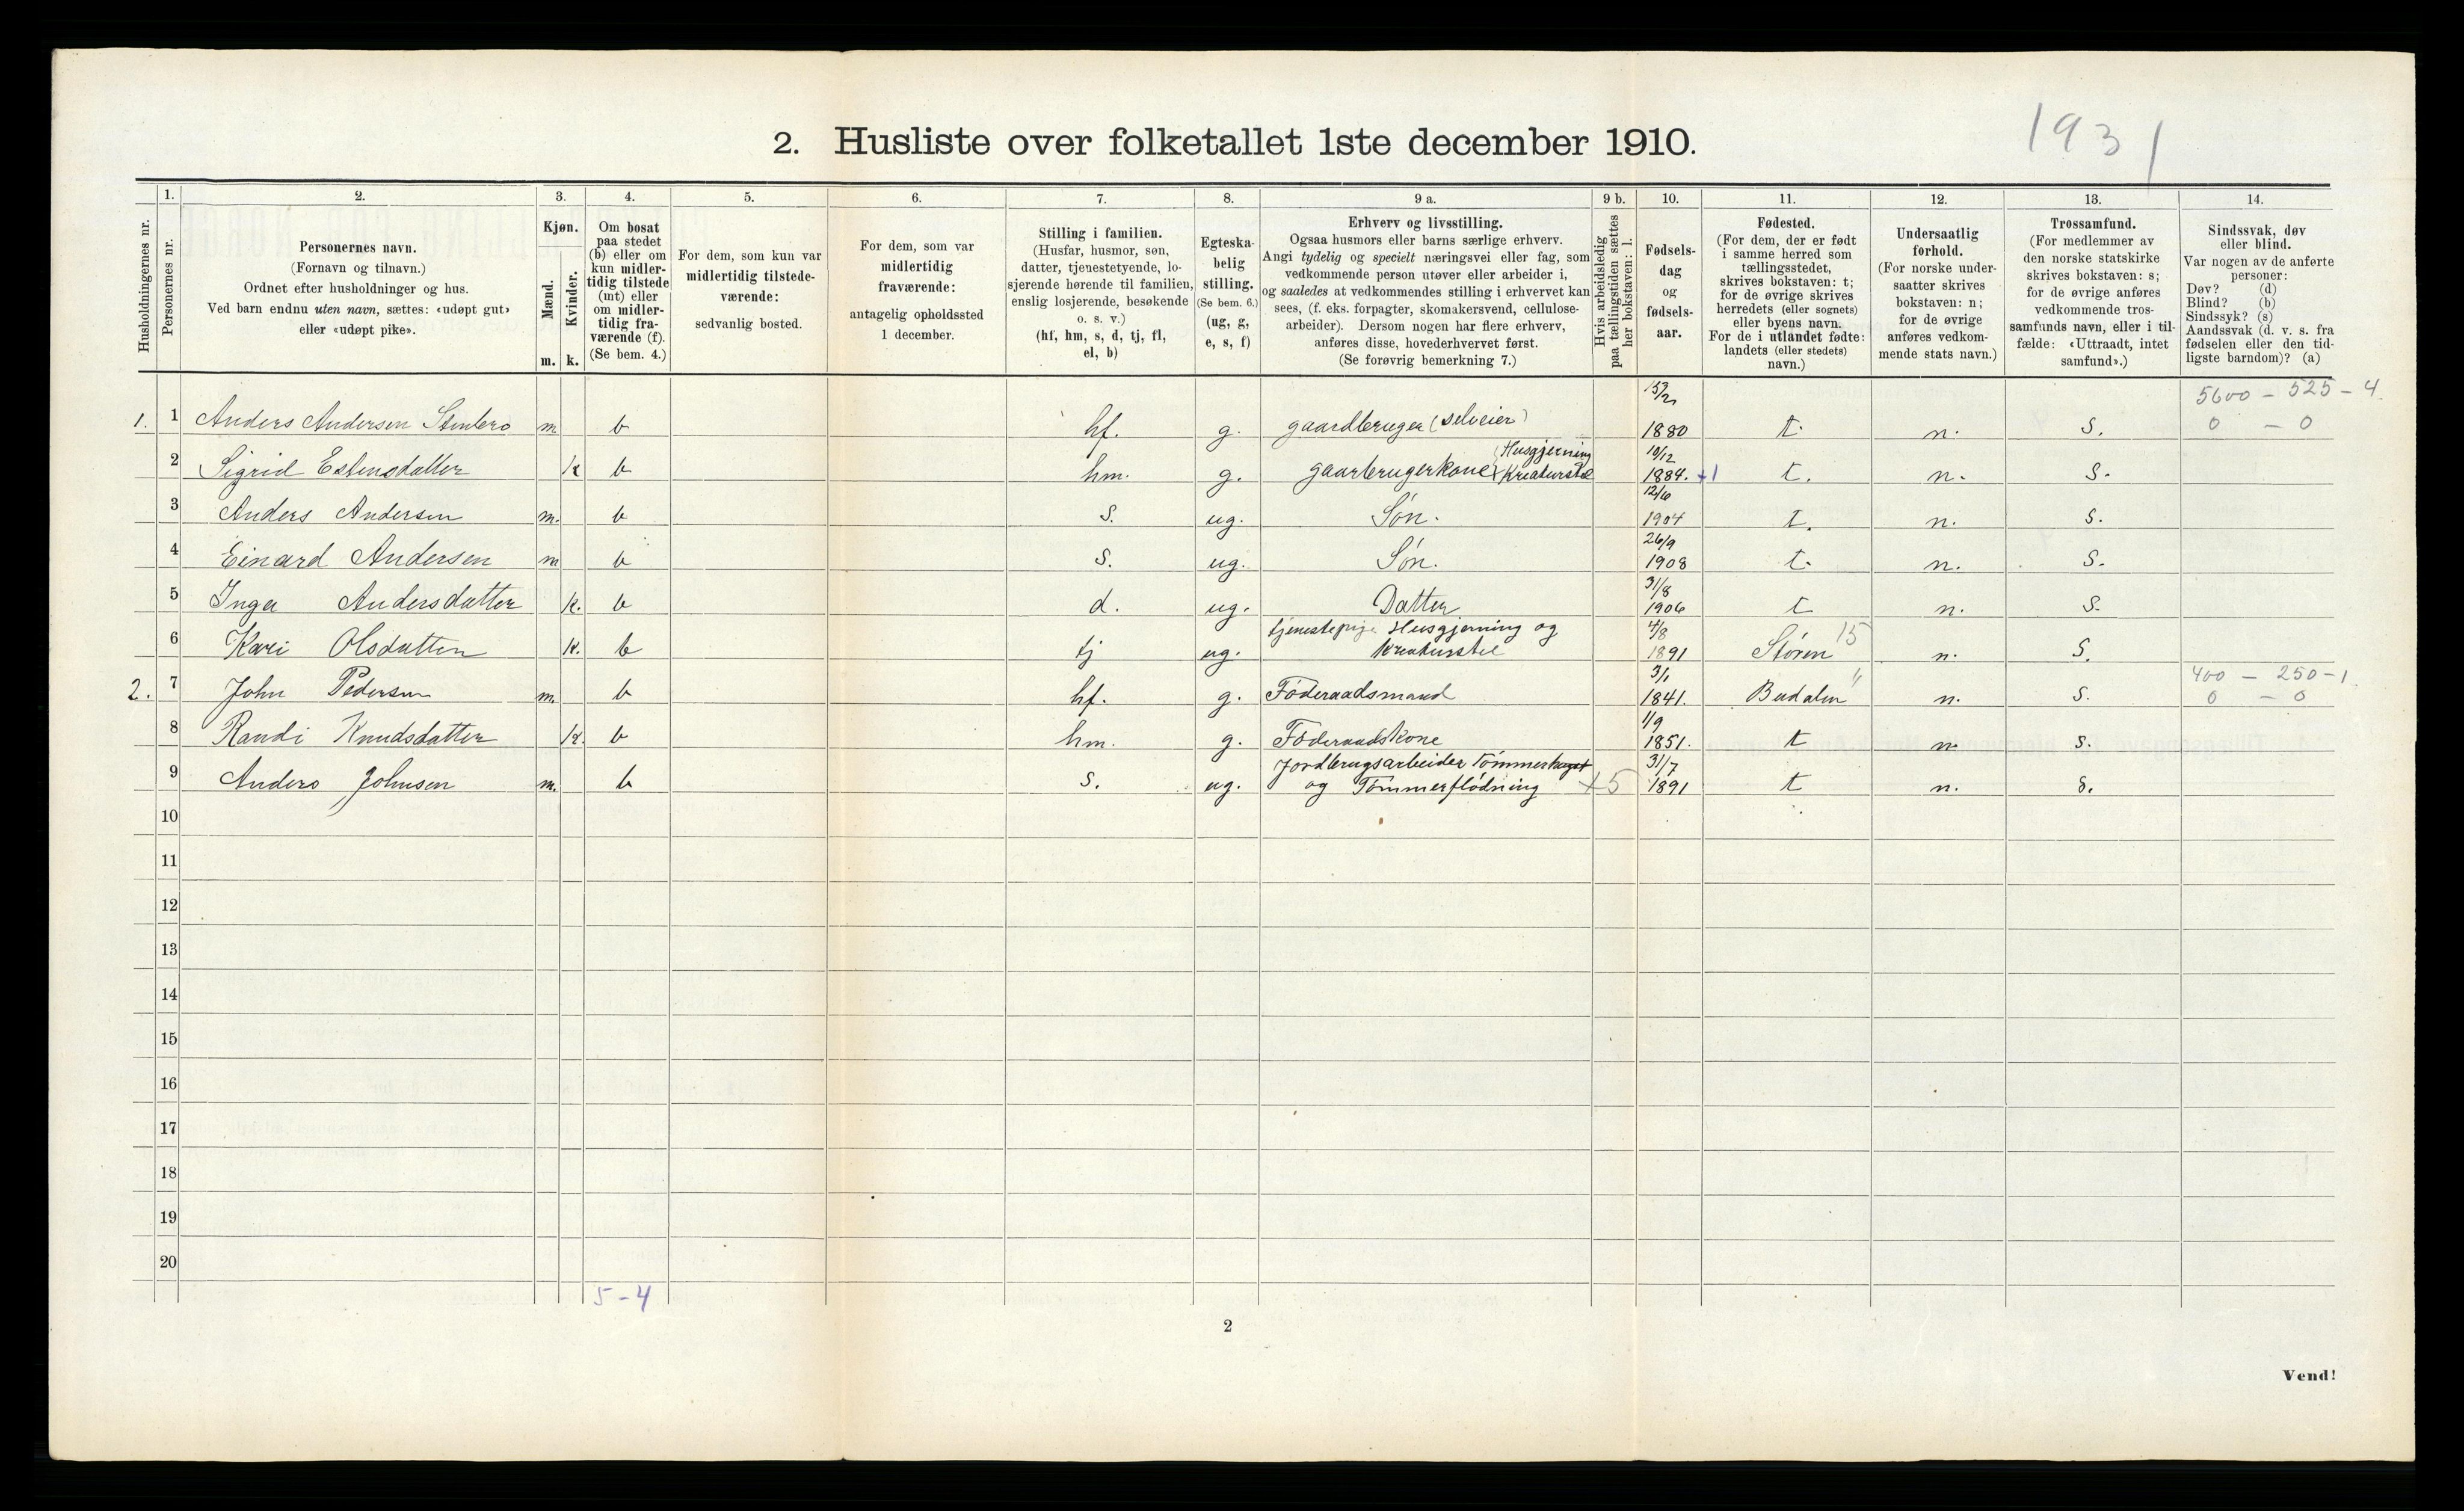 1931
2. Husliste over folketallet 1ste december 1910.
Husholdningernes nr.
1.
Personernes nr.
2.
Personernes navn.
(Fornavn og tilnavn.)
Ordnet efter husholdninger og hus.
Ved barn endnu uten navn, sættes: «udøpt gut»
eller «udøpt pike».
3.
Kjøn.
Mænd.
Kvinder.
m. k.
4.
Om bosat
paa stedet
(b) eller om
kun midler-
tidig tilstede
(mt) eller
om midler-
tidig fra-
værende (f).
(Se bem. 4.)
5.
For dem, som kun var
midlertidig tilstede-
værende:
sedvanlig bosted.
6.
For dem, som var
midlertidig
fraværende:
antagelig opholdssted
1 december.
7.
Stilling i familien.
(Husfar, husmor, søn,
datter, tjenestetyende, lo-
sjerende hørende til familien,
enslig losjerende, besøkende
o. s. v.)
(hf, hm, s, d, tj, fl,
el, b)
8.
Egteska-
belig
stilling.
(Se bem. 6.)
(ug, g,
e, s, f)
9 a.
Erhverv og livsstilling.
Ogsaa husmors eller barns særlige erhverv.
Angi tydelig og specielt næringsvei eller fag, som
vedkommende person utøver eller arbeider i,
og saaledes at vedkommendes stilling i erhvervet kan
sees, (f. eks. forpagter, skomakersvend, cellulose-
arbeider). Dersom nogen har flere erhverv,
anføres disse, hovederhvervet først.
(Se forøvrig bemerkning 7.)
9 b.
Hvis arbeidsledig
paa tællingstiden sættes
her bokstaven: l.
10.
Fødsels-
dag
og
fødsels-
aar.
11.
Fødested.
(For dem, der er født
i samme herred som
tællingsstedet,
skrives bokstaven: t;
for de øvrige skrives
herredets (eller sognets)
eller byens navn.
For de i utlandet fødte:
landets (eller stedets)
navn.)
12.
Undersaatlig
forhold.
(For norske under-
saatter skrives
bokstaven: n;
for de øvrige
anføres vedkom-
mende stats navn.)
13.
Trossamfund.
(For medlemmer av
den norske statskirke
skrives bokstaven: s;
for de øvrige anføres
vedkommende tros-
samfunds navn, eller i til-
fælde: «Uttraadt, intet
samfund».)
14.
Sindssvak, døv
eller blind.
Var nogen av de anførte
personer:
Døv? (d)
Blind? (b)
Sindssyk? (s)
Aandssvak (d. v. s. fra
fødselen eller den tid-
ligste barndom)? (a)
5600 – 525 – 4
1. 1 Anders Andersen Stenbero m b hf. g. gaardbruger (selveier) 1880 t. n. s. 0 – 0
2 Sigrid Estensdatter k b hm. g. gaarbrugerkone Husgjerning Kreaturstel 10/12 1884. +1 t. n. s.
3 Anders Andersen m. b s. ug. Søn. 12/6 1904 t. n. s.
4 Einard Andersen m b s. ug. Søn. 26/9 1908 t. n. s.
5 Inga Andersdatter k. b d. ug. Datter 31/8 1906 t n. s.
6 Kari Olsdatter k. b tj ug. tjenestepige Husgjerning og Kreaturstel 4/8 1891 Støren 15 n. s.
400 – 250 – 1
2. 7 John Pedersen m. b hf. g. Føderaadsmand 3/1 1841. Budalen " n. s. 0 – 0
8 Randi Knudsdatter k. b hm. g. Føderaadskone 1/9 1851. t n. s.
9 Anders Johnsen m. b s. ug. Jordbrugsarbeider Tømmerhugst og Tømmerflødning +5 31/7 1891 t n. s.
10
11
12
13
14
15
16
17
18
19
20
5 – 4
2
Vend!